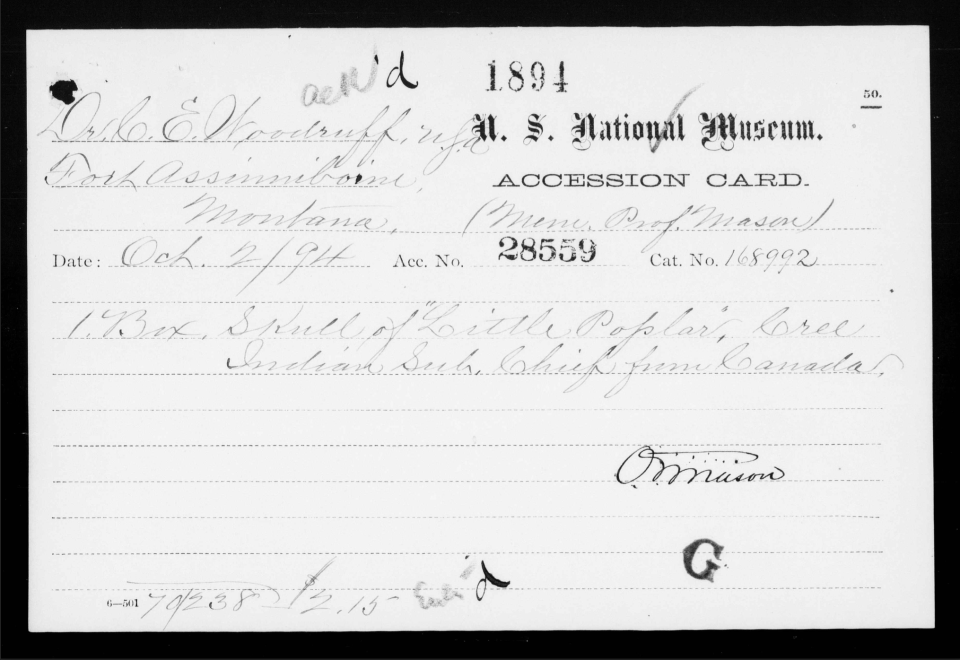 ack'd 1894
50.
Dr. C. E. Woodruff, U.S.A. U. S. National Museum.
Fort Assinniboine, ACCESSION CARD.
Montana. (Mem. Prof. Mason)
Date: Oct. 2/94 Acc. No. 28559 Cat. No. 168992
1. Box. Skull of "Little Poplar", Cree
Indian Sub. Chief from Canada.
O. T. Mason
G
6—501 $2.15 Ent'd